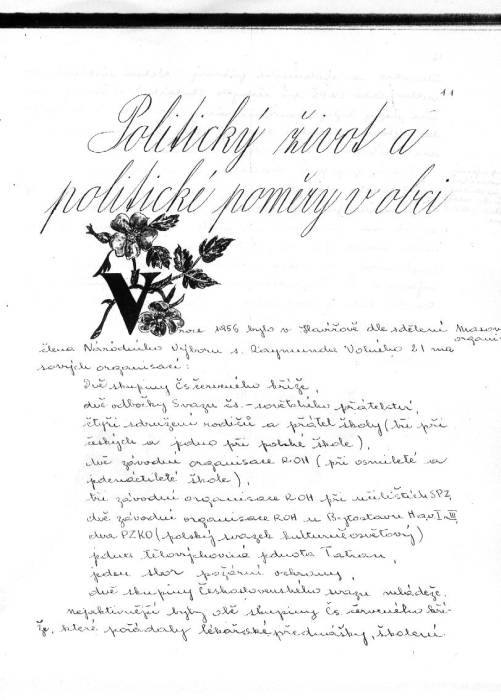 11
Politický život a
politické poměry v obci
V roce 1956 bylo v Havířově dle sdělení Masov
organi
člena Národního Výboru s. Raymunda Volného 21 ma
sových organisací:
Dvě skupiny Čs. červeného kříže,
dvě odbočky Svazu čs.-sovětského přátelství,
čtyři sdružení rodičů a přátel školy (tři při
českých a jedno při polské škole),
dvě závodní organisace ROH (při osmileté a
jedenáctileté škole),
tři závodní organisace ROH při učilištích SPZ,
dvě závodní organisace ROH u Bytostavu Hav I a III,
dva PZKO (polský svazek kulturně osvětový)
jednu tělovýchovná jednota Tatran,
jeden sbor požární ochrany,
dvě skupiny Československého svazu mládeže.
Nejaktivnější byly obě skupiny Čs. červeného kří-
že, které pořádaly lékařské přednášky, školení